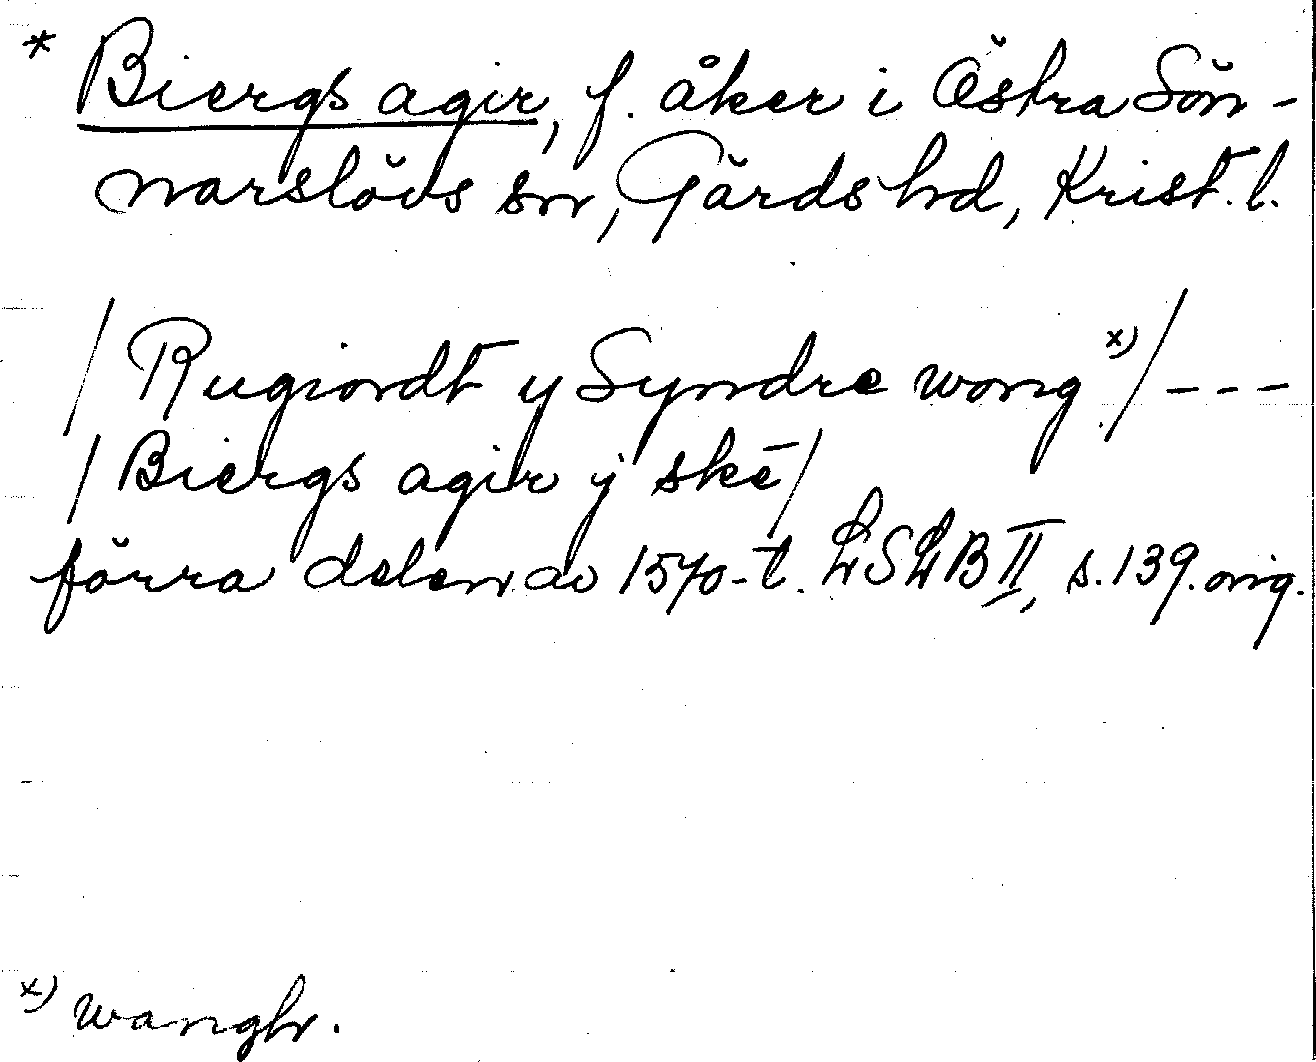 * Biergs agir, f. åker i Östra Sön-
narslövs sn, Gärds hd, Krist. l.
/ Rugiordt y Syndre wong x) / ---
/ Biergs agir ÿ skē /
förra delen av 1570-t. LSLB II, s. 139. orig.
x) wangh.